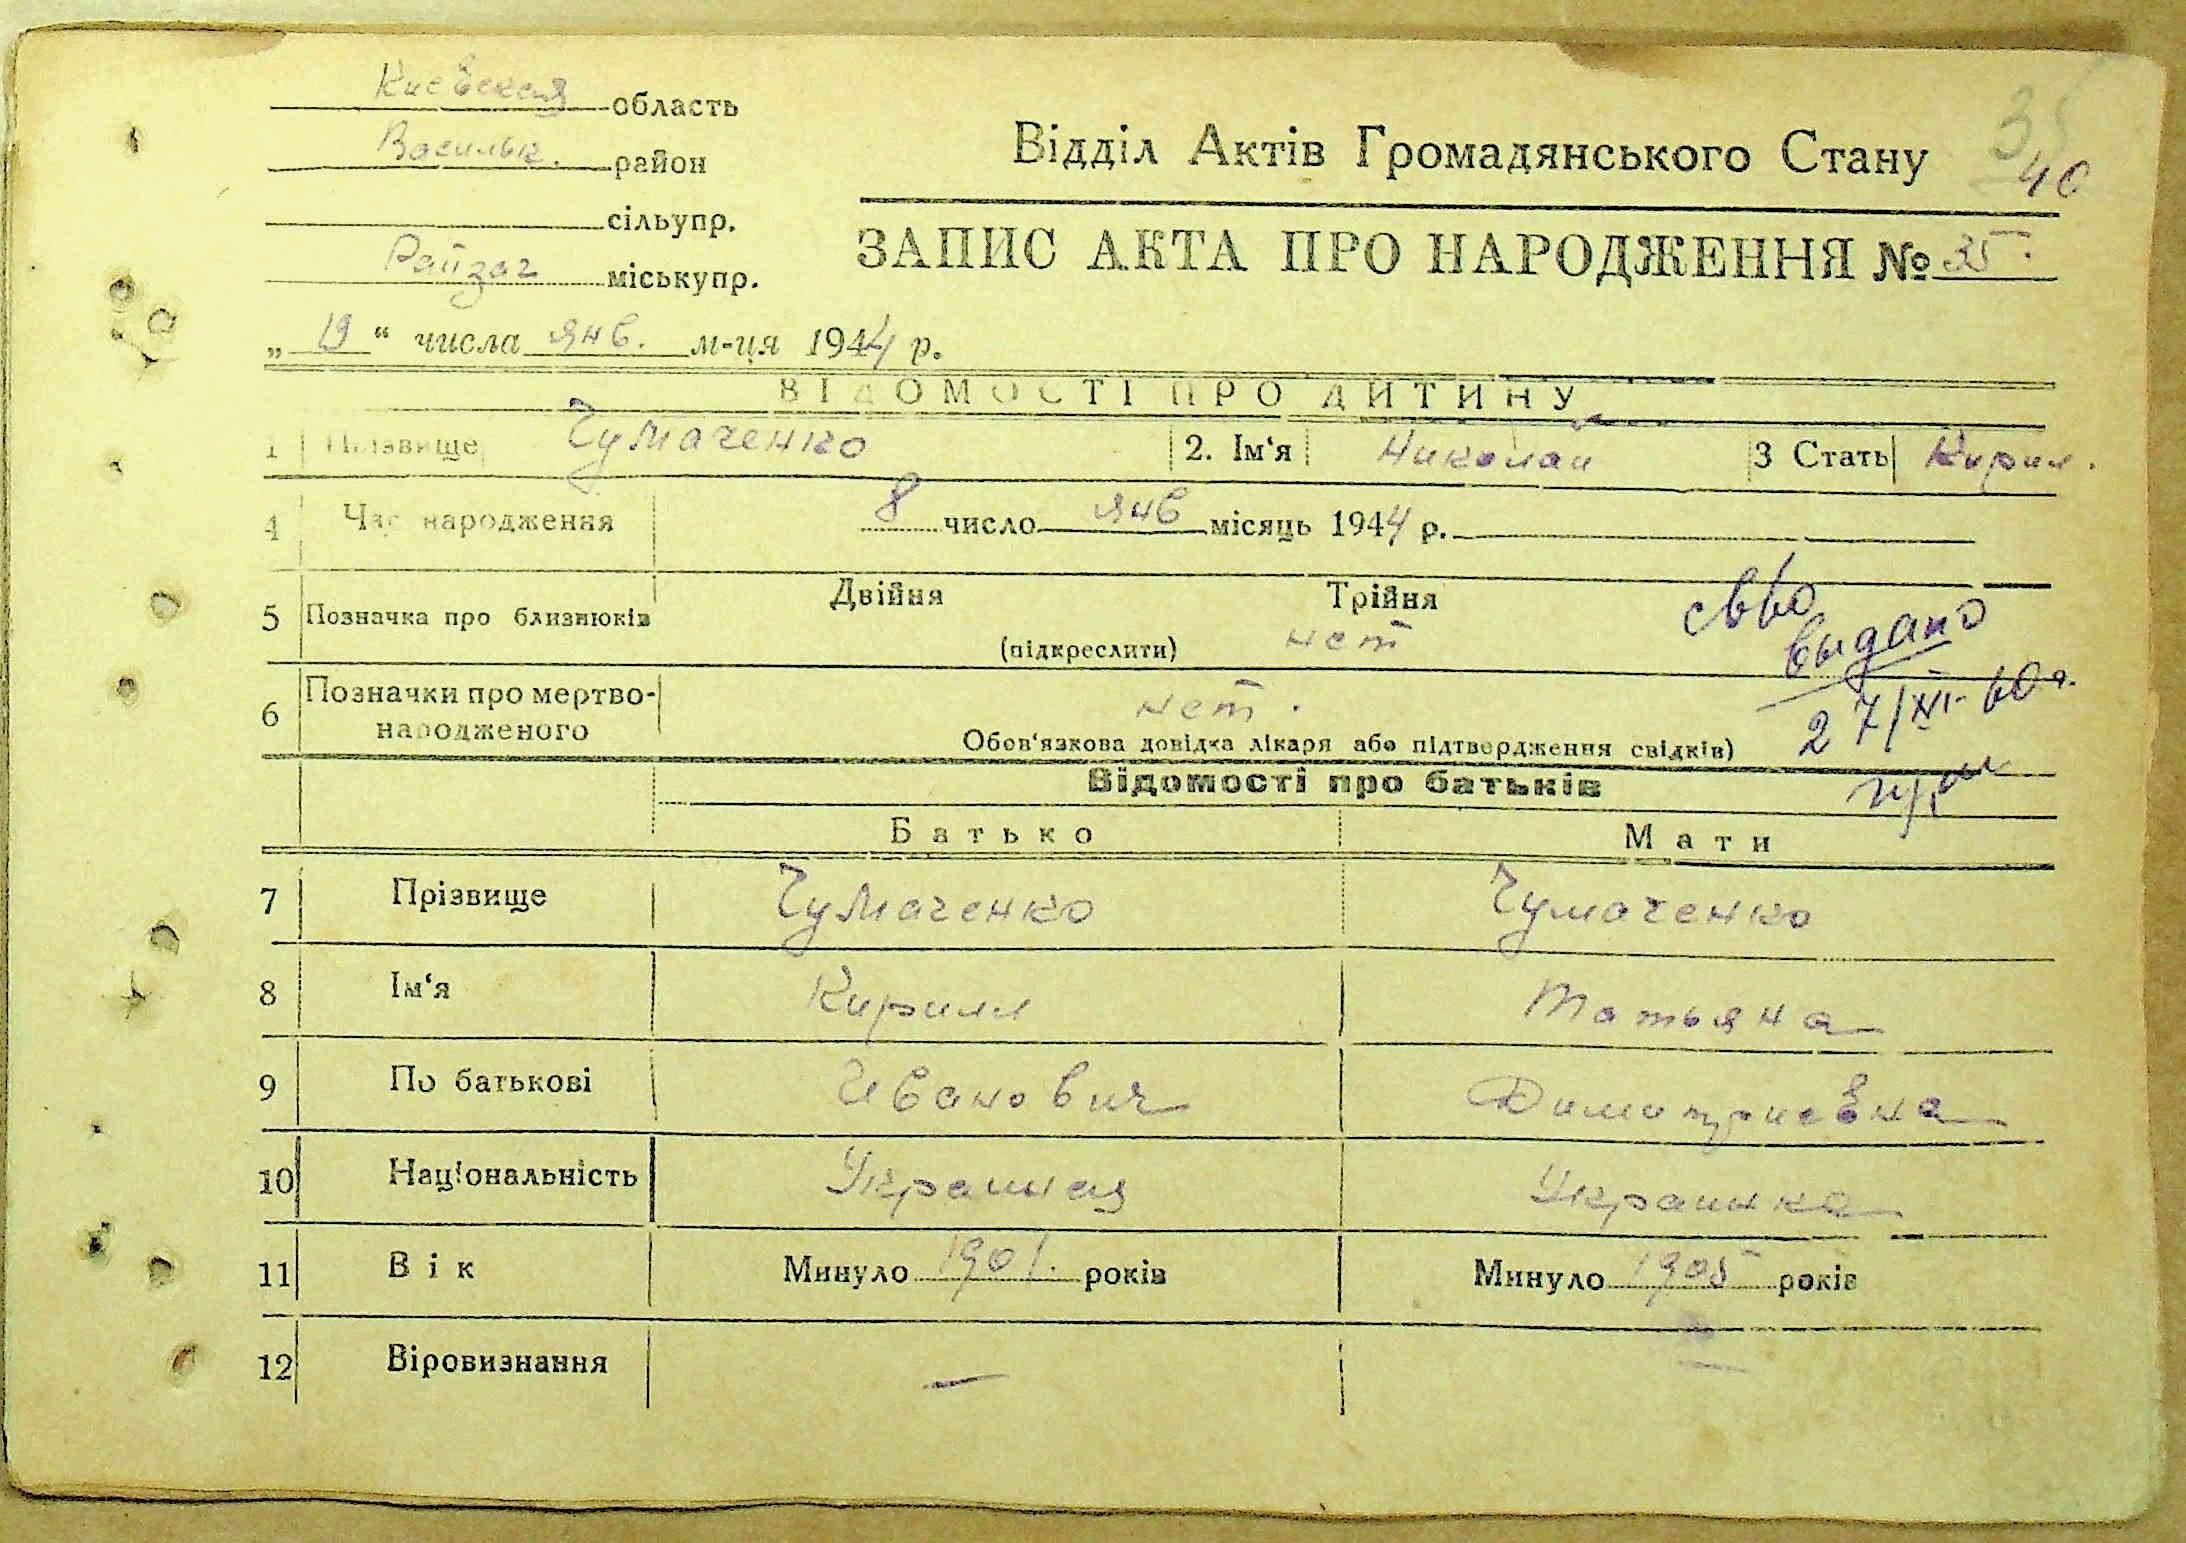 Киевская область
Васильк. район
сільупр.
Райзаг міськупр.
Відділ Актів Громадянського Стану
35
40
ЗАПИС АКТА ПРО НАРОДЖЕННЯ № 35.
„ 19 “ числа янв. м-ця 1944 р.
ВІДОМОСТІ ПРО ДИТИНУ
1 Прізвище Чумаченко 2. Ім‘я Николай 3 Стать Кирил.
4 Час народження 8 число янв місяць 1944 р.
5 Позначка про близнюків Двійня Трійня
(підкреслити) нет
св-во
выдано
27/XI-60г.
6 Позначки про мертво-
народженого
нет.
Обов‘язкова довідка лікаря або підтвердження свідків)
Відомості про батьків
Батько Мати
7 Прізвище Чумаченко Чумаченко
8 Ім‘я Кирилл Татьяна
9 По батькові Иванович Димитриевна
10 Національність Украинец Украинка
11 Вік Минуло 1901. років Минуло 1905 років
12 Віровизнання — —